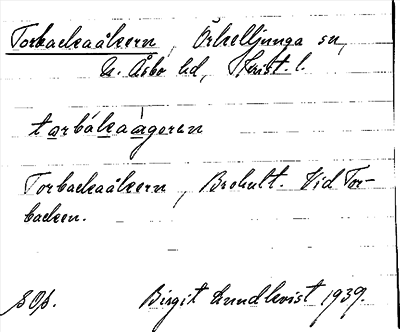 Torbackaåkern, Örkelljunga sn,
N. Åsbo hd, Krist. l.
tọrbákaàgeren
Torbackaåkern, Brohult. Vid Tor-
backen.
Birgit Lundkvist 1939.